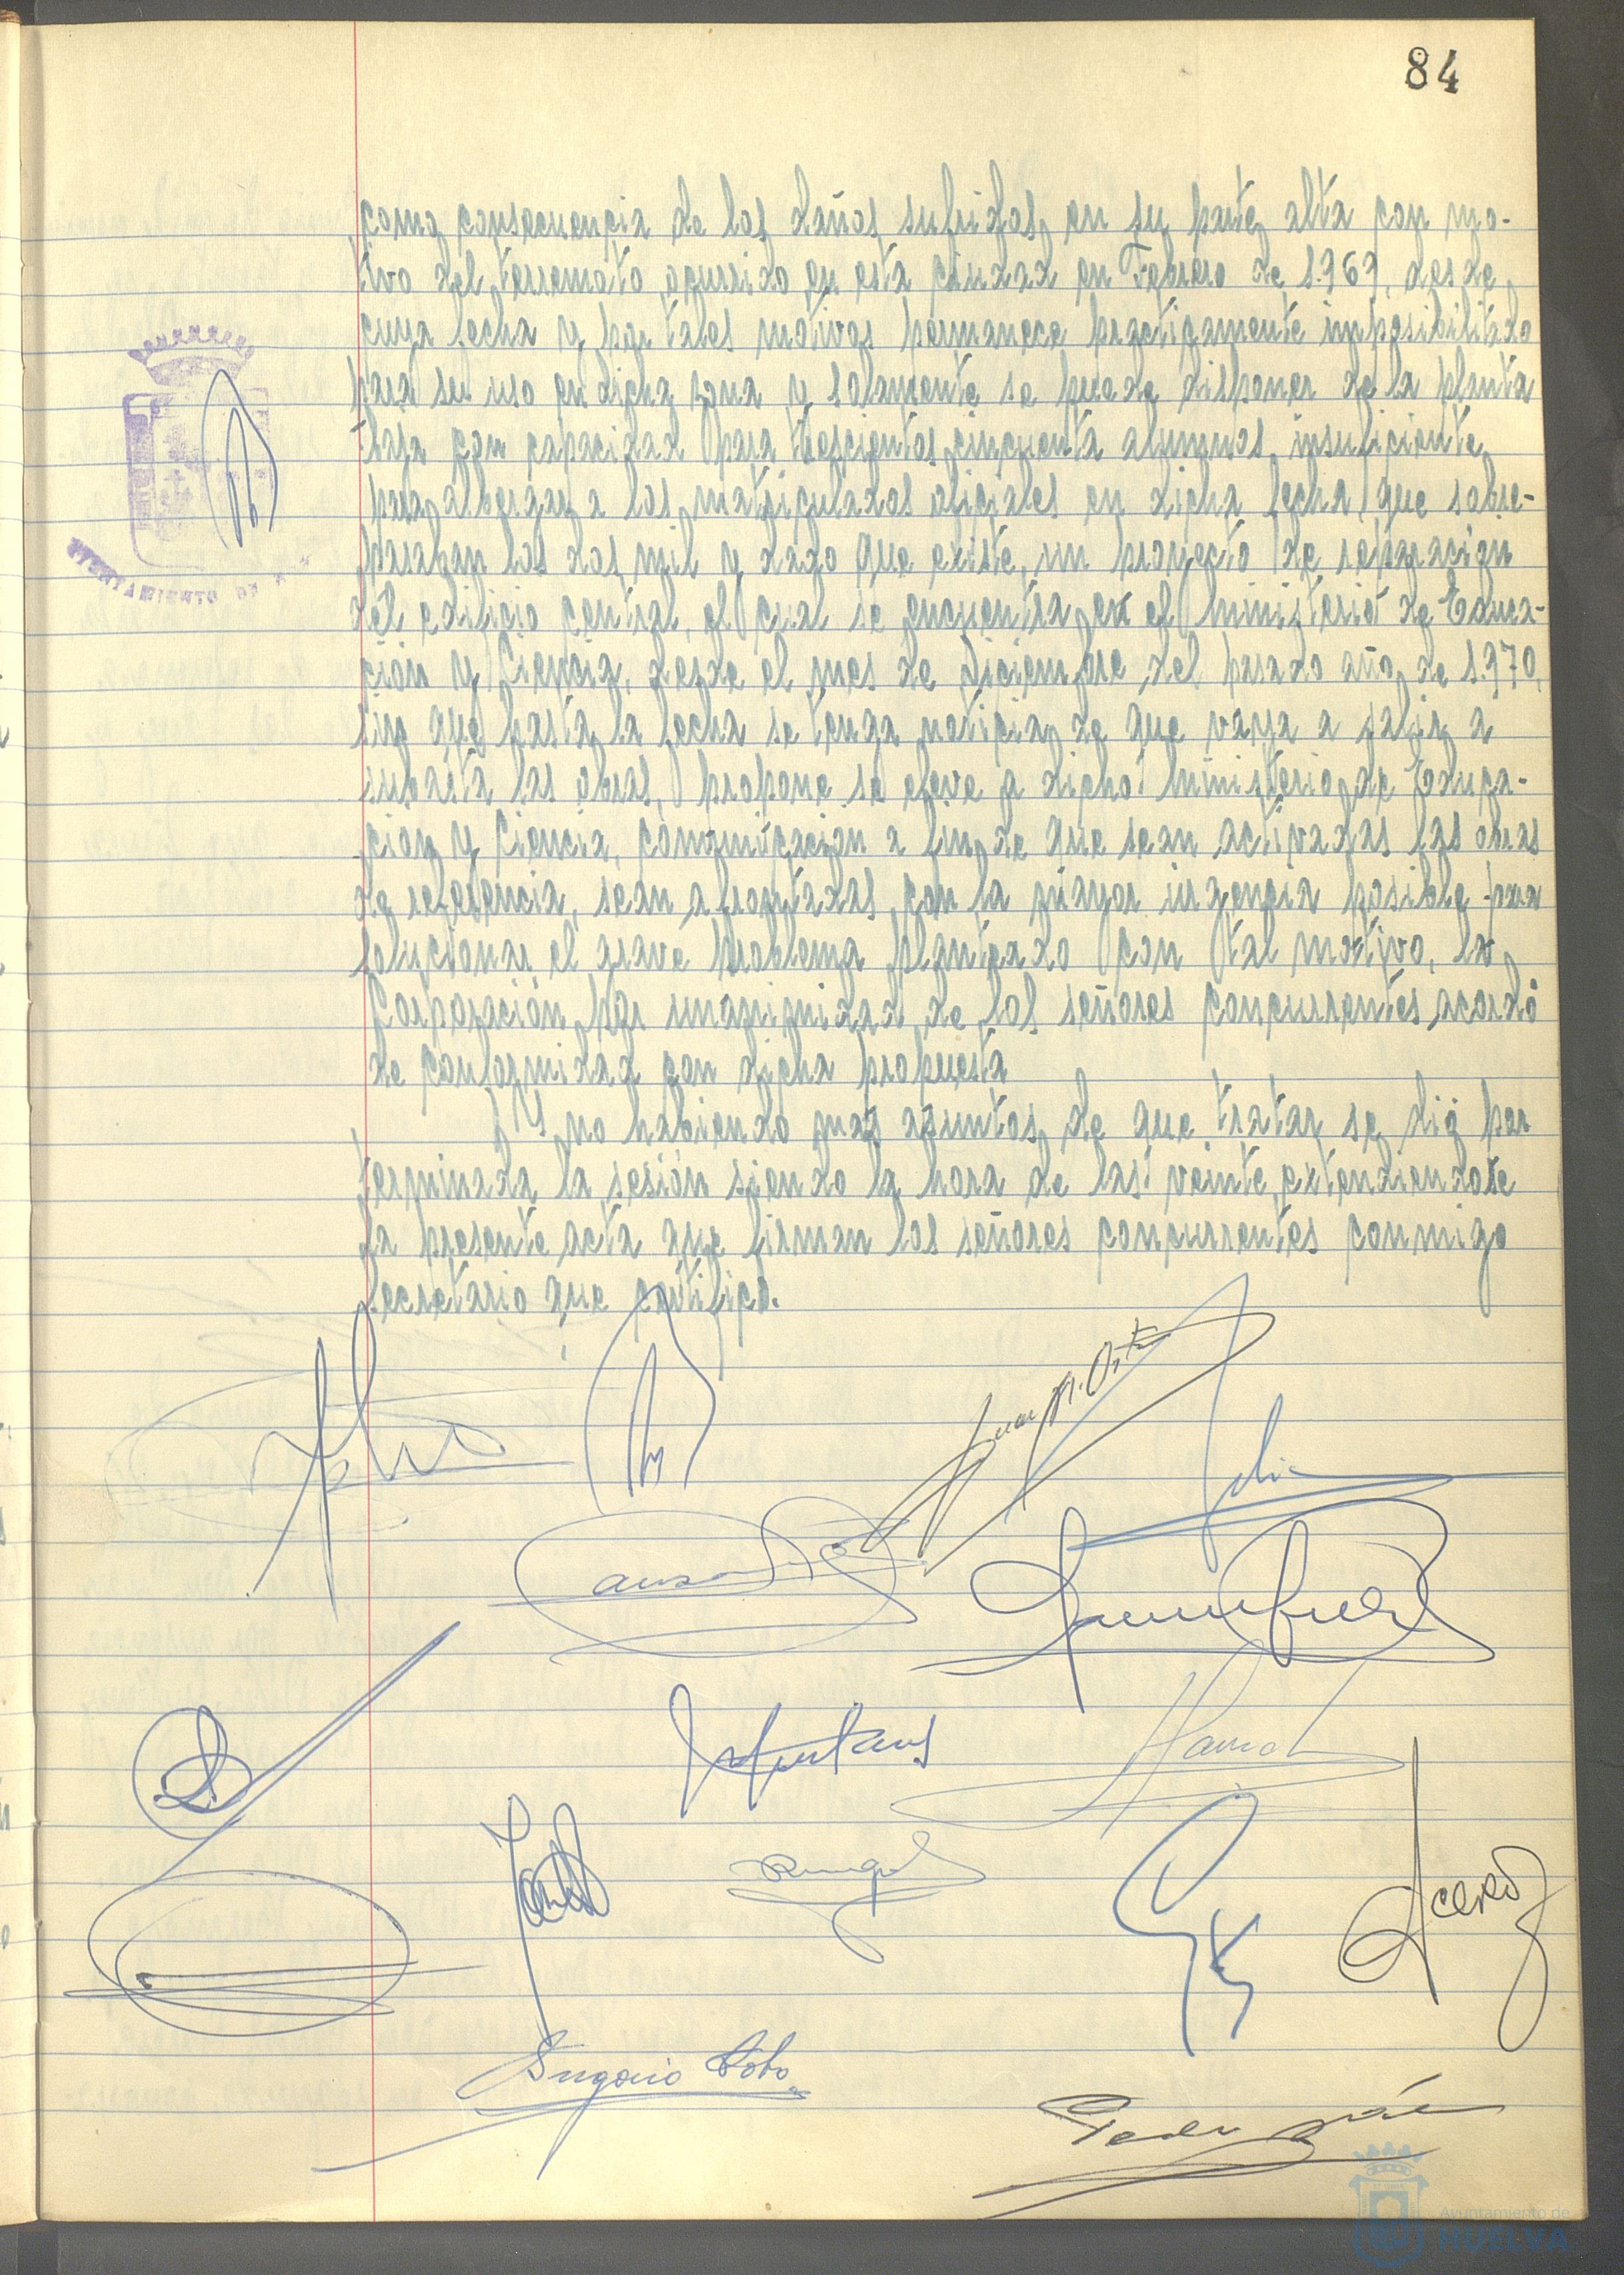 84
como consecuencia de los daños sufridos en su parte alta con mo-
tivo del terremoto ocurrido en esta ciudad en Febrero de 1.969, desde
cuya fecha y por tales motivos permanece practicamente imposibilitado
para su uso en dicha zona y solamente se puede disponer de la planta
baja con capacidad para trescientos cincuenta alumnos, insuficiente
para albergar a los matriculados oficiales en dicha fecha que sobre-
pasaban los dos mil y dado que existe un proyecto de reparación
del edificio central, el cual se encuentra en el Ministerio de Educa-
ción y Ciencia, desde el mes de Diciembre del pasado año de 1.970,
sin que hasta la fecha se tenga noticia de que vaya a salir a
subasta las obras, propone se eleve a dicho Ministerio de Educa-
ción y Ciencia, comunicación a fin de que sean activadas las obras
de referencia, sean afrontadas con la mayor urgencia posible para
solucionar el grave problema planteado con tal motivo, la
Corporación por unanimidad de los señores concurrentes acordó
de conformidad con dicha propuesta
Y no habiendo mas asuntos de que tratar se dió por
terminada la sesión siendo la hora de las veinte, extendiendose
la presente acta que firman los señores concurrentes conmigo
Secretario que certifico.
AYUNTAMIENTO DE
Acevedo
Ayuntamiento de
HUELVA